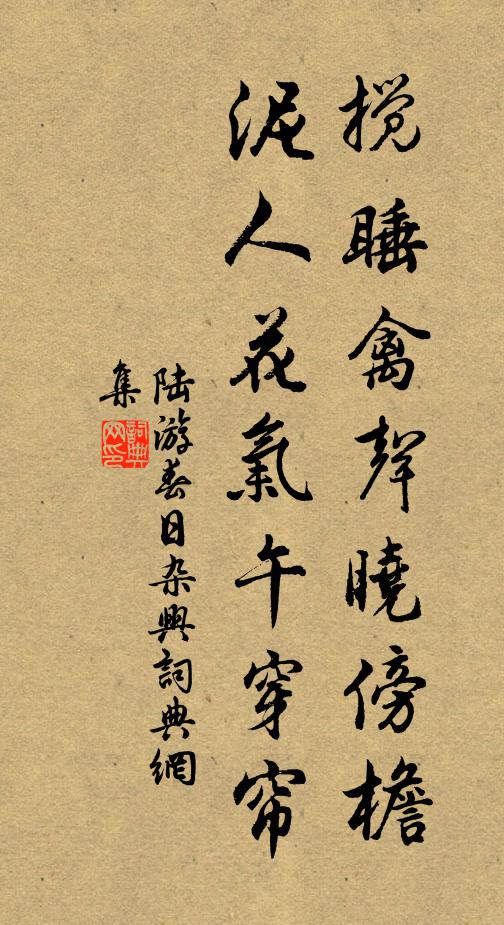 搅睡禽聲曉傍檐
泥人花氣午穿帘
陆游春日杂興詞典網
集
詞典
网印